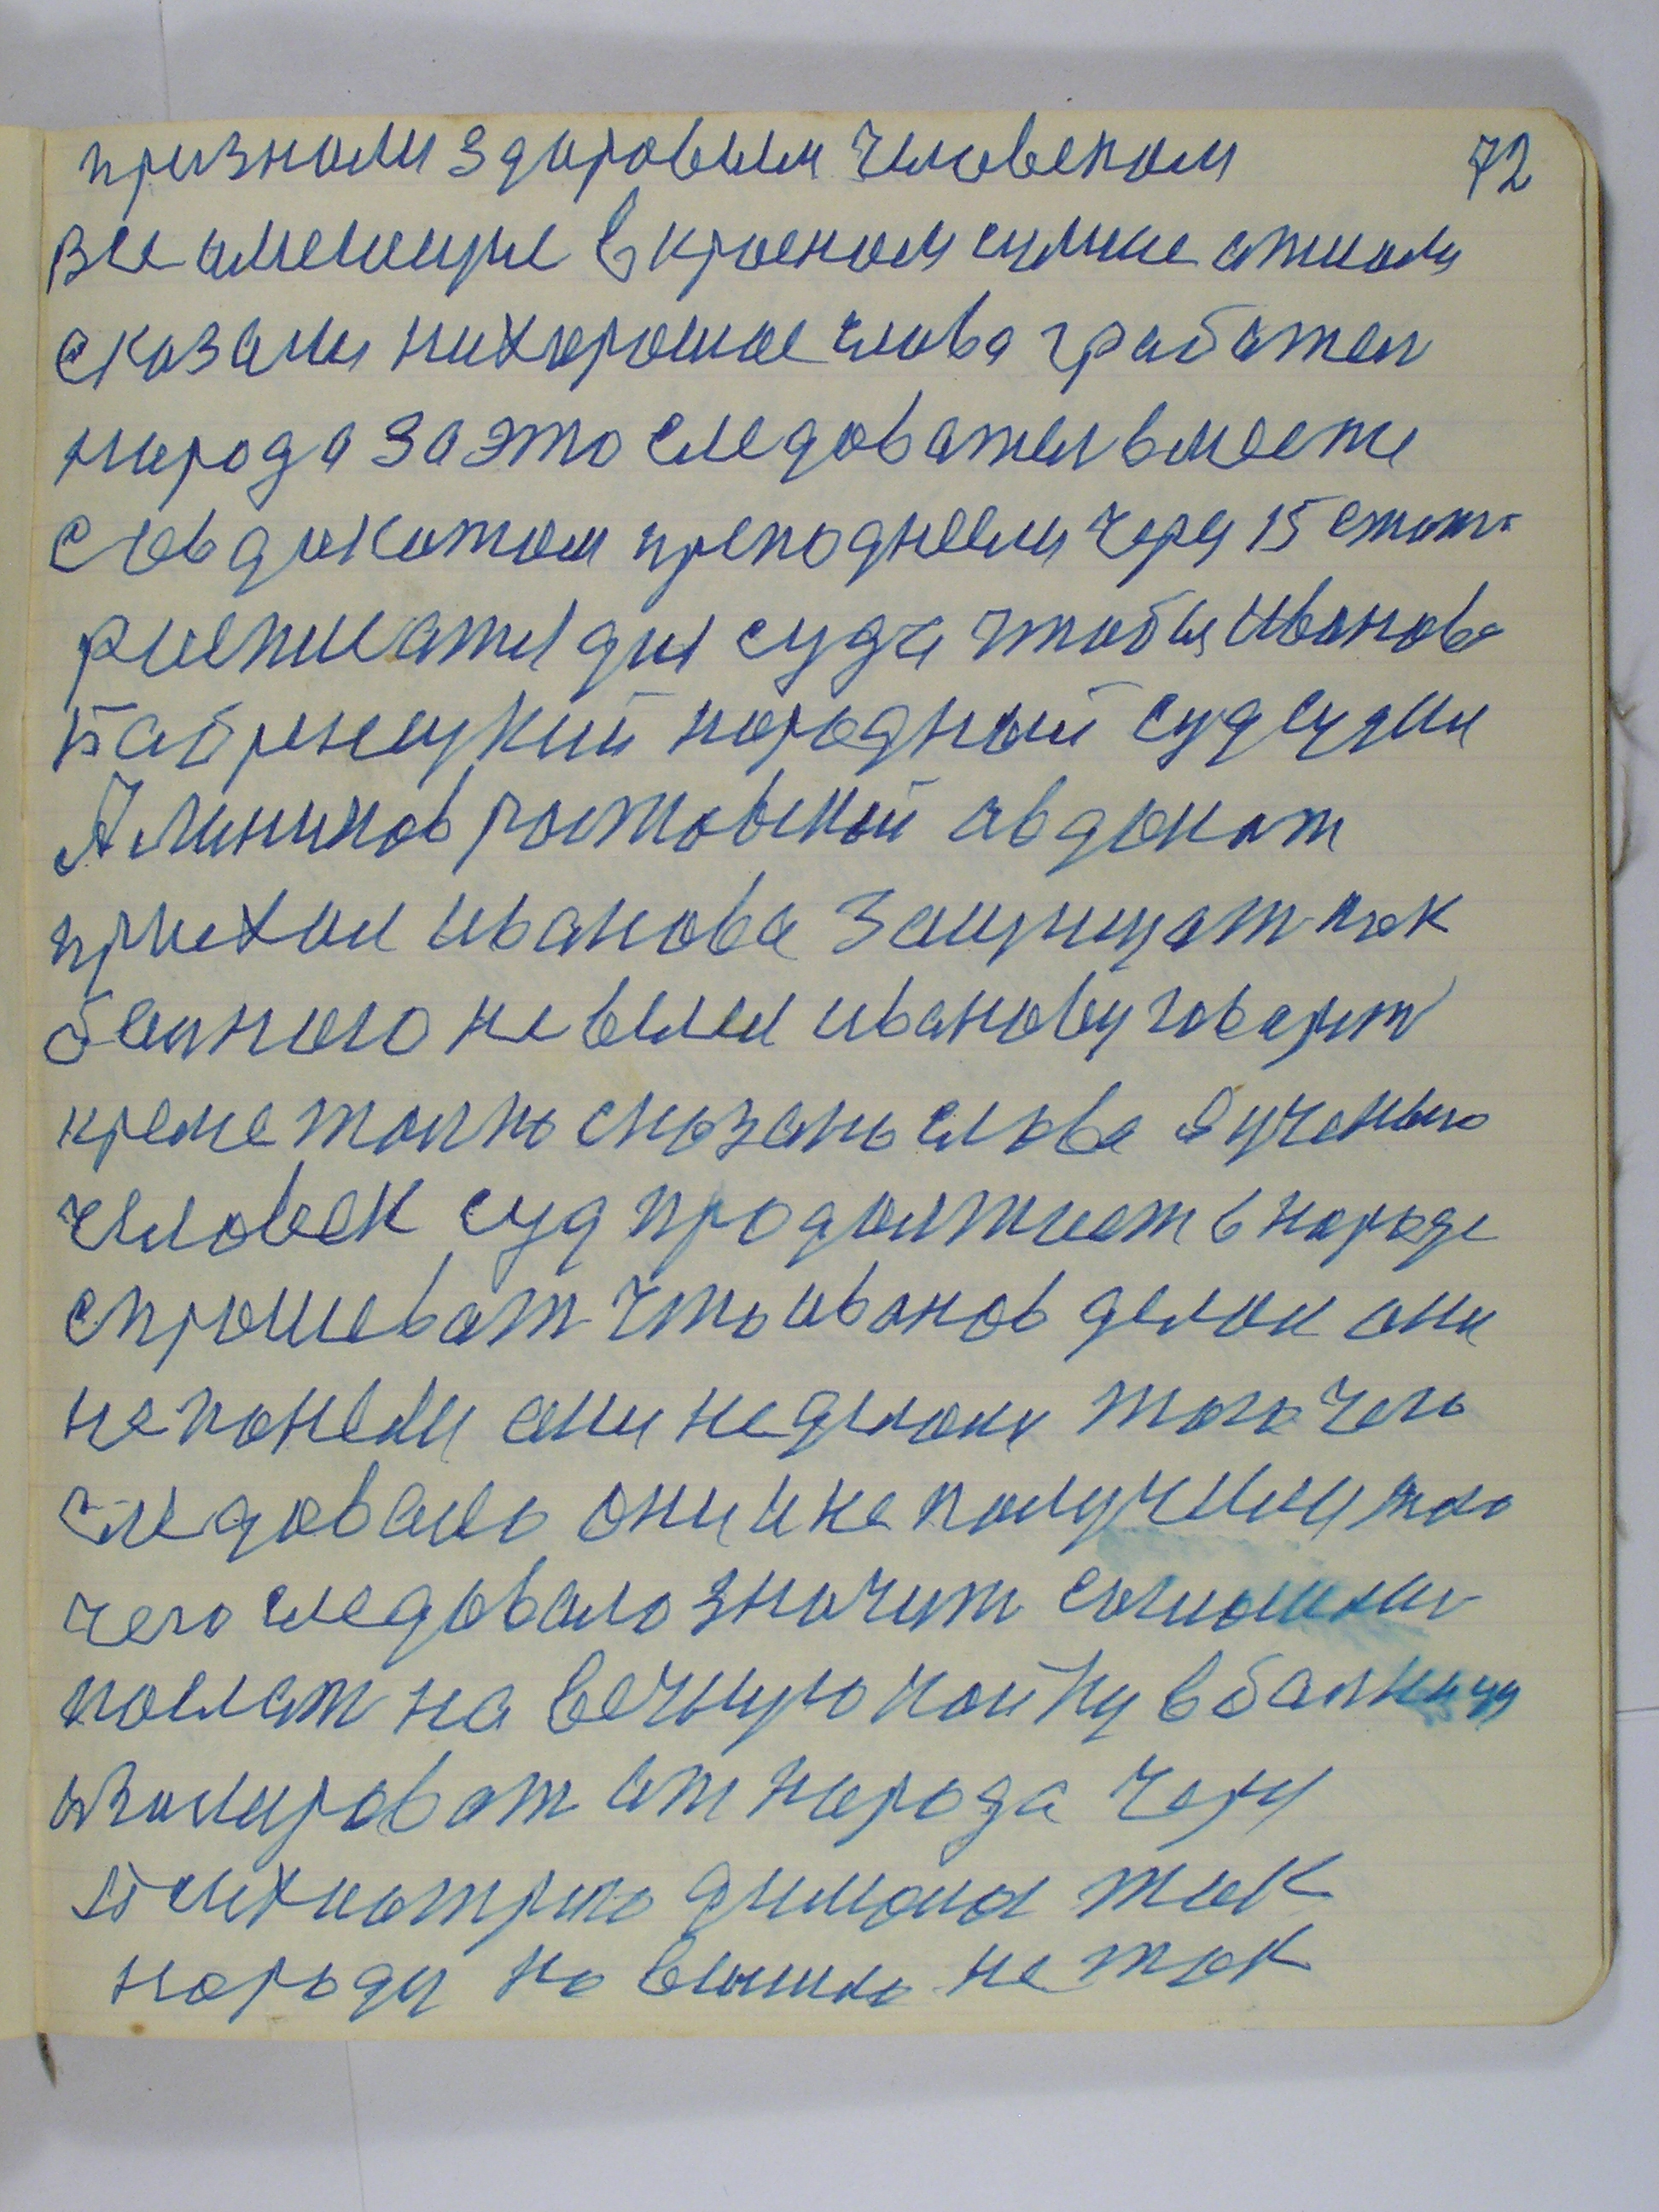 признали здоровым человеком 72
все имеющие в красном сумке отняли
сказали нихорошое слова грабител
народа за это следователь вместе
с авдокатом преподнесли чере 15 стат.
росписатся для суда чтобы Иванова
Бабренецкий народный суд судил
А Линников ростовский авдокат
приехал иванова Защищат как
балного не вылел иванову говорит
кроме толко сказано слова я ученыю
человек суд продолжает в народе
спрошеват что иванов делал они
не понели они не делали того чего
следовало они и не получили того
чего следовало значит
послат на вечную койку в балницу
изолироват от народа чере
Психиатрию думала так
народу но вышло не так